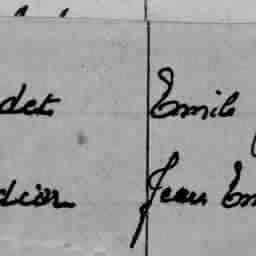 det Emile
dior Jean Em